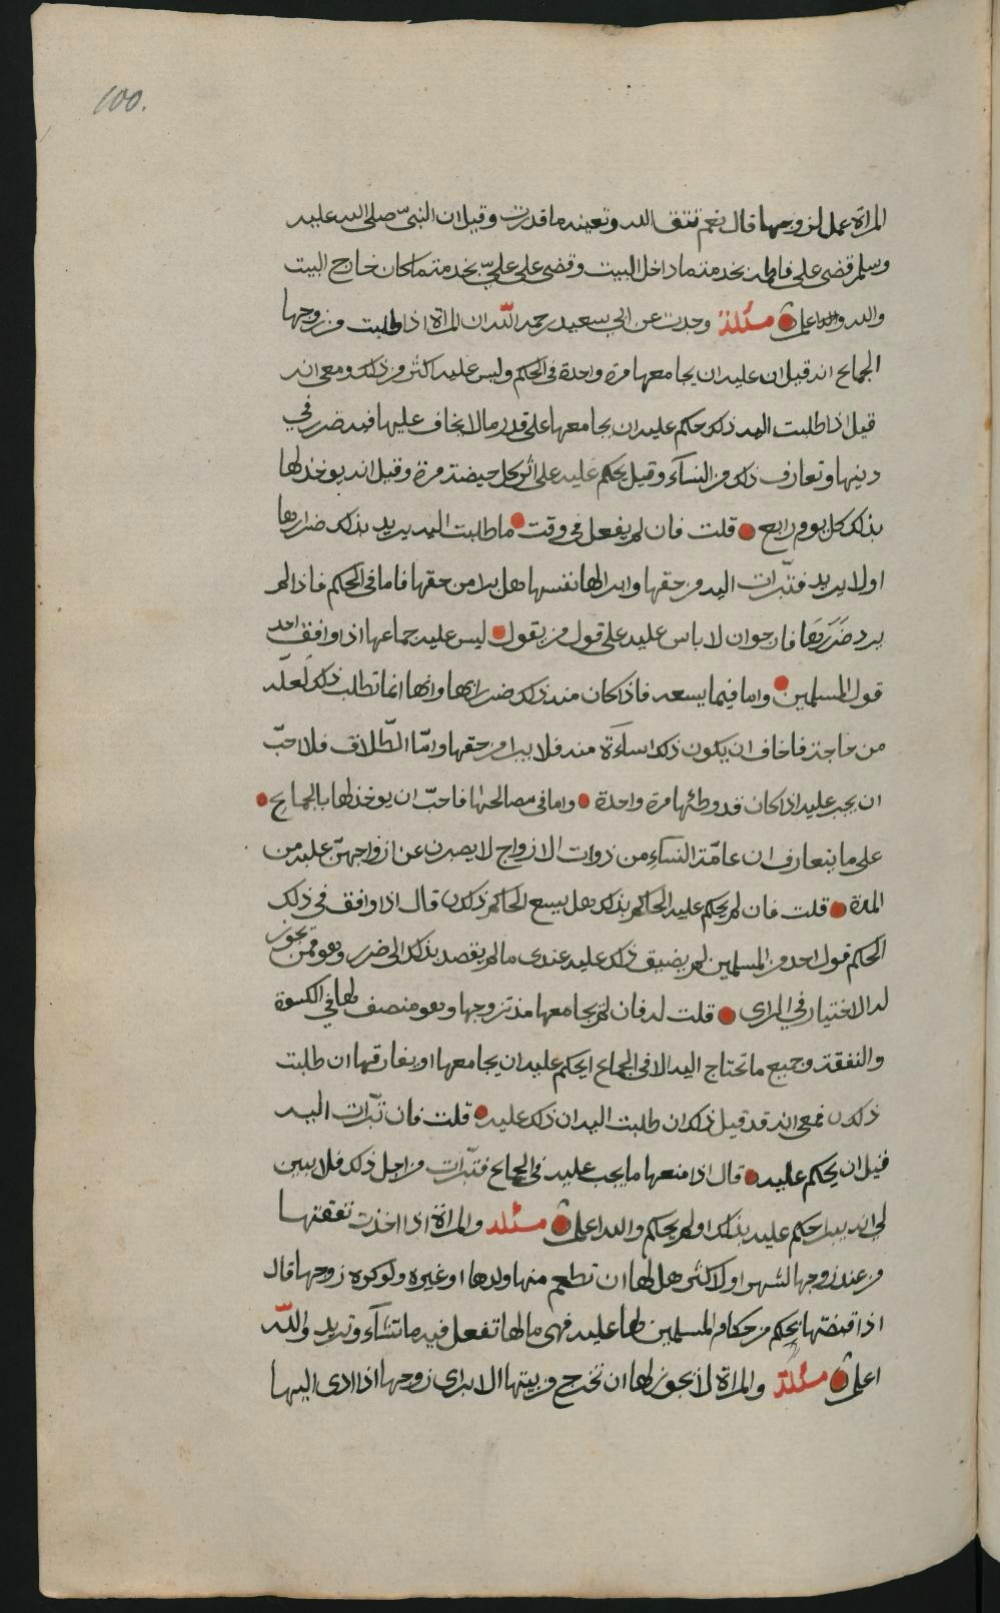 100.
المراة عمل لزوجها قال نعم تتق الله وتعينه ما قدرت وقيل ان النبيّ صلى الله عليه
وسلم قضى على فاطمة بخدمة ما داخل البيت وقضى على عليّ بخدمة ما كان خارج البيت
والله والله اعلم مسئلة وجدت عن ابي سعيد رحمه الله ان المراة اذا طلبت من زوجها
الجماع انه قيل ان عليه ان يجامعها مرة واحدة في الحكم وليس عليه اكثر من ذلك ومعي انه
قيل اذا طلبت اليه ذلك حكم عليه ان يجامعها على قدر ما لا يخاف عليها فيه ضرر في
دينها وتعارف ذلك من النسآء وقيل يحكم عليه على اثر كل حيضة مرة وقيل انه يوخذ لها
بذلك كل يوم رابع قلت فان لم يفعل في وقت ما طلبت اليه يريد بذلك ضرارها
اولا يريد فتبرّات اليه من حقها وابرا لها نفسها هل يبرا من حقها فاما في الحكم فاذا لم
يرد ضررها فارجوا ان لا باس عليه على قول من يقول ليس عليه جماعها اذا وافق احد
قول المسلمين واما فيما يسعه فاذا كان منه ذلك ضرارها وانها انما تطلب ذلك لعله
من حاجة فاخاف ان يكون ذلك اساءة منه فلا يبرا من حقها وامّا الطّلاق فلا احبّ
ان يجب عليه اذا كان قد وطئها مرة واحدة واما في مصالحها فاحبّ ان يوخذ لها بالجماع
على ما يتعارف ان عامّة النسآء من ذوات الازواج لا يصبرن عن ازواجهنّ عليه من
المدة قلت فان لم يحكم عليه الحاكم بذلك هل يسع الحاكم ذلك قال اذا وافق في ذلك
الحكم قول احد من المسلمين لم يضيق ذلك عليه عندي ما لم يقصد بذلك الى ضرر وهو ممن يجوز
له الاختيار في الراى قلت له فان لم يجامعها مذ تزوجها وهو منصف لها في الكسوة
والنفقة وجميع ما تحتاج اليه الا في الجماع ايحكم عليه ان يجامعها او يفارقها ان طلبت
ذلك فمعي انه قد قيل ذلك ان طلبت اليه ان ذلك عليه قلت فان تبرّات اليه
قبل ان يحكم عليه قال اذا منعها ما يجب عليه في الجماع فتبرّات من اجل ذلك فلا يبين
لي انه يبرا حكم عليه بذلك او لم يحكم والله اعلم مسئله والمراة اذا اخذت نفقتها
من عند زوجها لشهر او لاكثر هل لها ان تطعم منها ولدها او غيره ولو كره زوجها قال
اذا قبضتها بحكم من حكام المسلمين لها عليه فهى مالها تفعل فيه ما تشآء وتريد والله
اعلم مسئلة والمراة لا يجوز لها ان تخرج من بيتها الا براى زوجها اذا ادى اليها